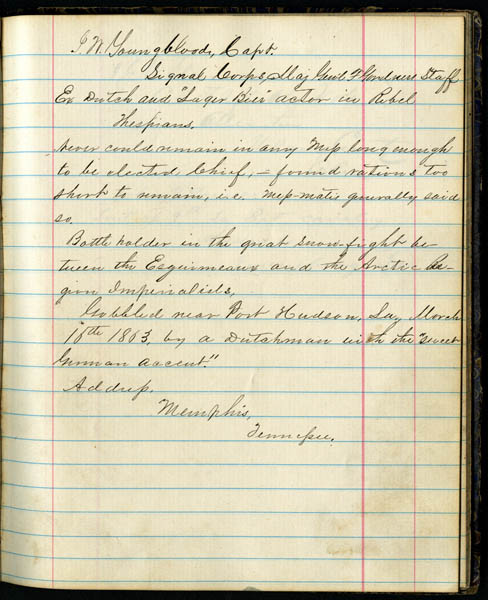 J. W. Youngblood, Capt.
Signal Corps, Maj Genl F Gardners Staff
Ex Dutch and "Lager Bier" actor in Rebel
Thespians.
Never could remain in any Mess long enough
to be elected Chief, – found rations too
short to remain, i.e. mess-mates generally said
so.
Bottle holder in the great snow-fight be-
tween the Esquimeaux and the Arctic Re-
gion Imperialists,
Gobbled near Port Hudson, La, March
10th 1863, by a Dutchman with the "sweet
German accent."
Address.
Memphis,
Tennessee.